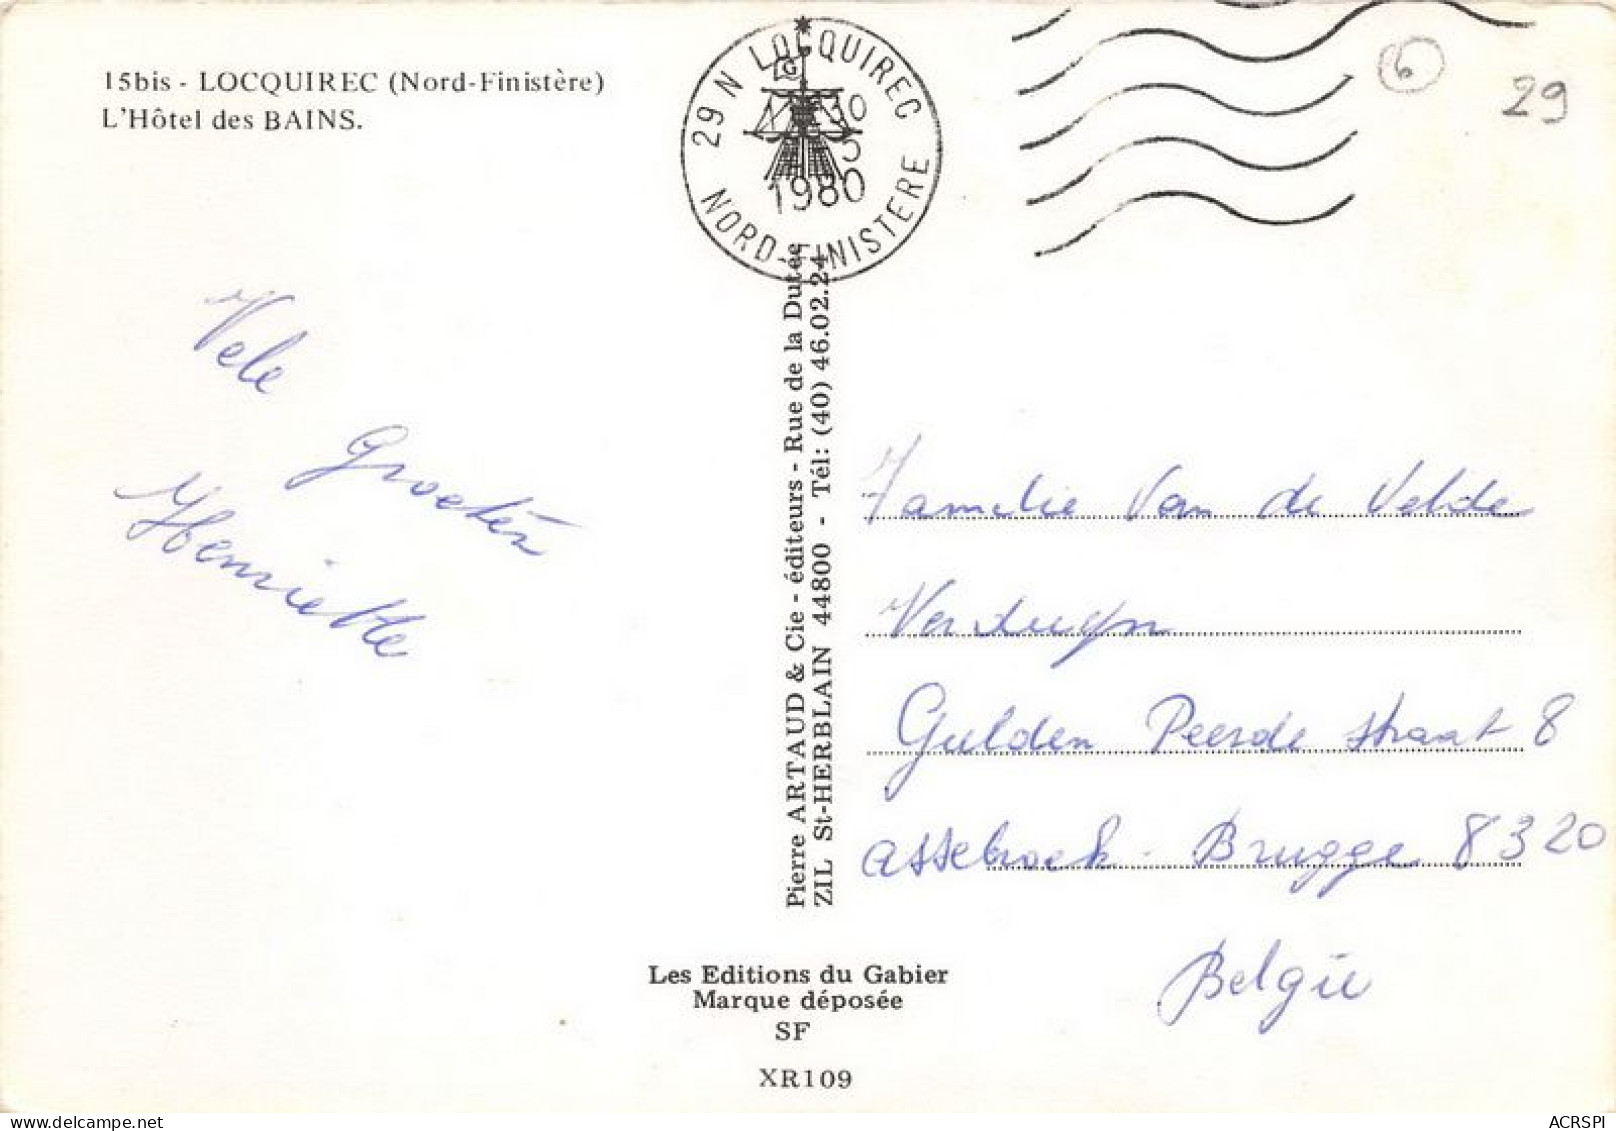 15bis - LOCQUIREC (Nord-Finistère)
L'Hôtel des BAINS.
29 N LOCQUIREC
G
30
5
1980
NORD-FINISTERE
6
29
Vele
Groeten
Henriette
Pierre ARTAUD & Cie - éditeurs - Rue de la Dutée
ZIL St-HERBLAIN 44800 - Tél: (40) 46.02.24
Familie Van de Velde
Verduyn
Gulden Peerde straat 8
Assebroek - Brugge 8320
Belgie
Les Editions du Gabier
Marque déposée
SF
XR109
ACRSPI